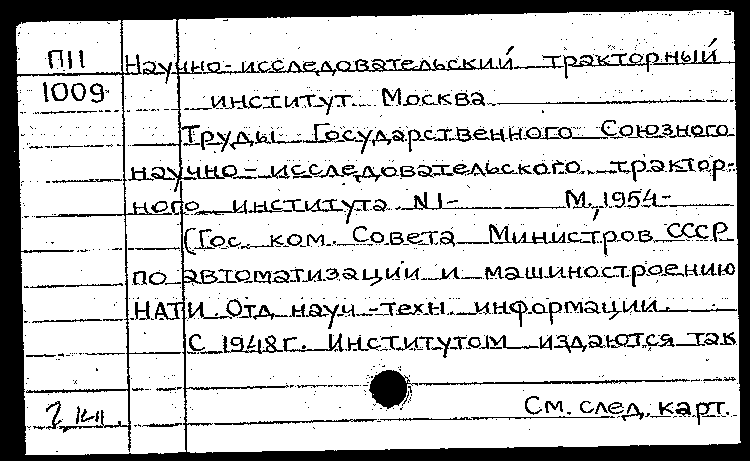 П11
1009
Научно-исследовательский тракторный
институт. Москва
Труды Государственного Союзного
научно-исследовательского трактор-
ного института. N1- М., 1954-
(Гос. ком. Совета Министров СССР
по автоматизации и машиностроению
НАТИ. Отд. науч.-техн. информации.
С 1948г. Институтом издаются так
См. след. карт.